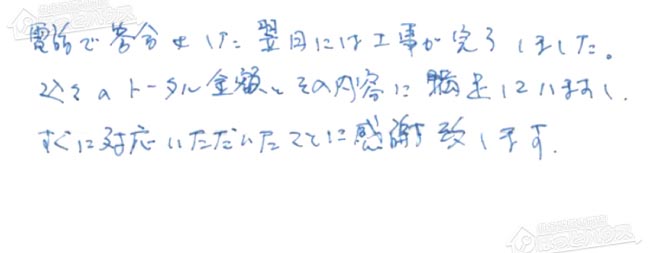 電話で
翌日には工事が完了しました。
トータル金額とその内容に満足していますし、
すぐに対応いただいたことに感謝致します。